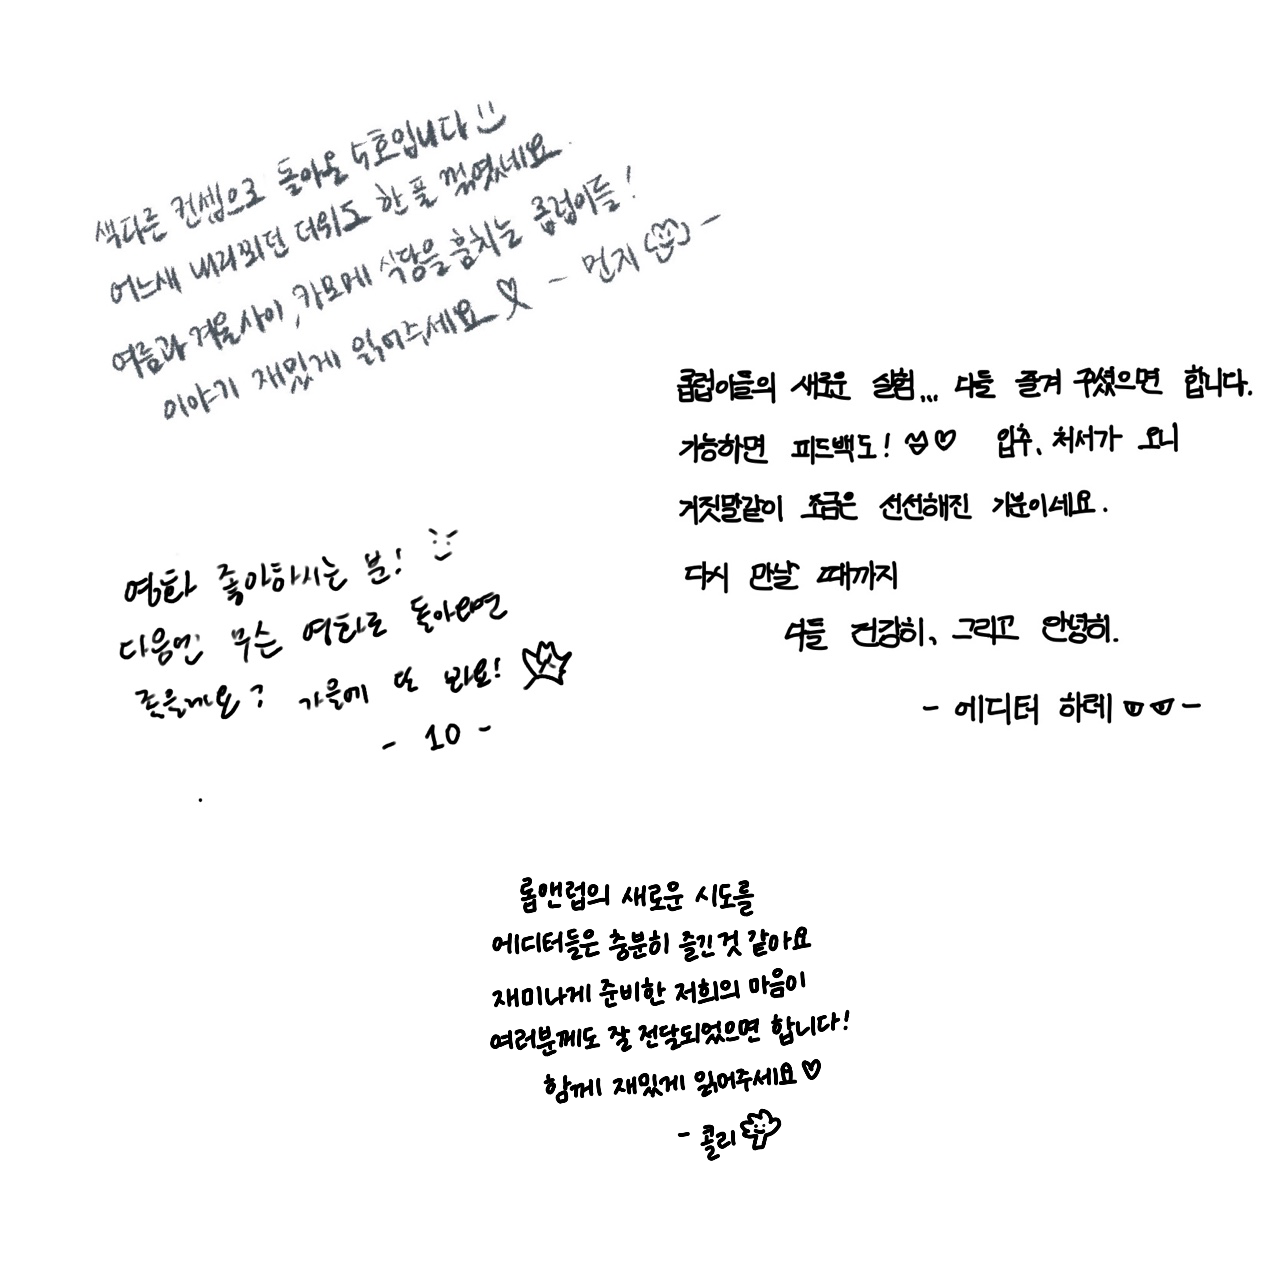 색다른 컨셉으로 돌아온 5호입니다
어느새 내리쬐던 더위도 한 풀 꺾였네요.
여름과 겨울 사이, 카모메 식당을 훔치는 롭럽이들!
이야기 재밌게 읽어주세요 - 먼지 -
롭럽이들의 새로운 실험... 다들 즐겨 주셨으면 합니다.
가능하면 피드백도! ♡♡ 입추, 처서가 오니
거짓말같이 조금은 선선해진 기분이네요.
다시 만날 때까지
다들 건강히, 그리고 안녕히.
- 에디터 하레 -
영화 좋아하시는 분!
다음엔 무슨 영화로 돌아오면
좋을까요? 가을에 또 봐요!
- 10 -
롭앤럽의 새로운 시도를
에디터들은 충분히 즐긴 것 같아요
재미나게 준비한 저희의 마음이
여러분께도 잘 전달되었으면 합니다!
함께 재밌게 읽어주세요 ♡
- 콜리